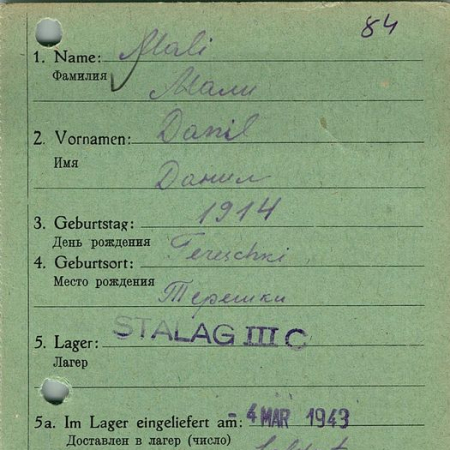 84
1. Name: Mali
Фамилия
Мали
2. Vornamen: Danil
Имя
Данил
3. Geburtstag: 1914
День рождения
4. Geburtsort: Tereschki
Место рождения
Терешки
5. Lager: STALAG III C
Лагер
5a. Im Lager eingeliefert am: - 4 MÄR 1943
Доставлен в лагер (число)